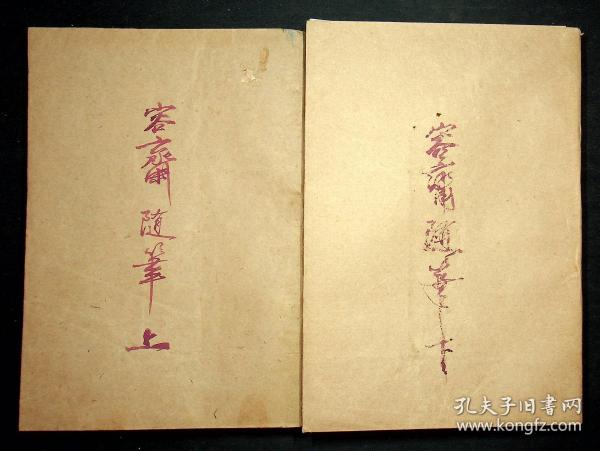 容齋随筆上
容齋隨筆下
孔夫子旧書网
www.kongfz.com